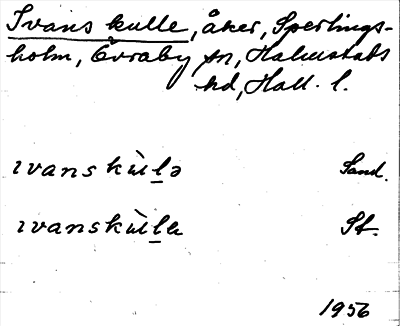 Ivans kulle, åker, Sperlings-
holm, Övraby sn, Halmstads
hd, Hall. l.
ıvanskùl̲ə Sand.
ıvanskùl̲a St.
1956